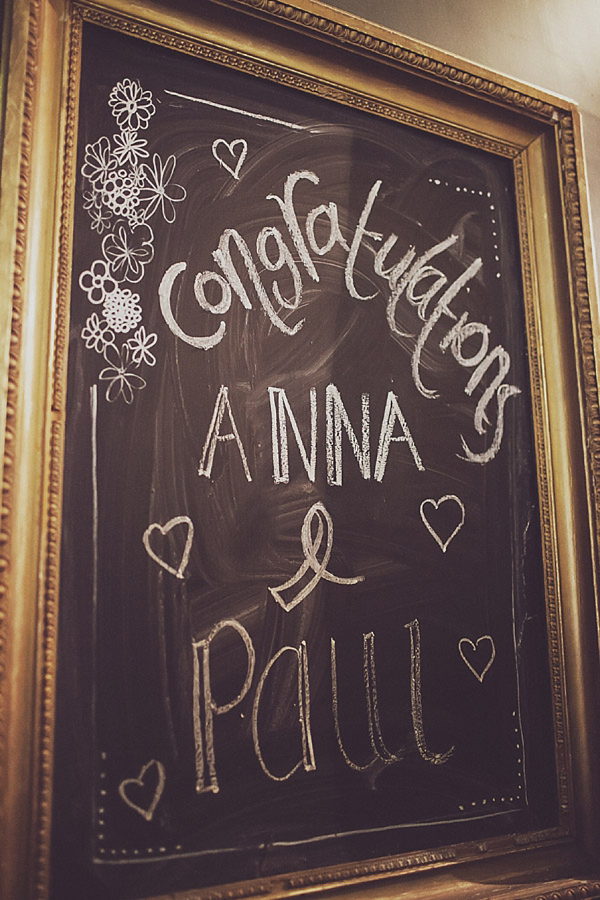 Congratulations
ANNA
&
Paul